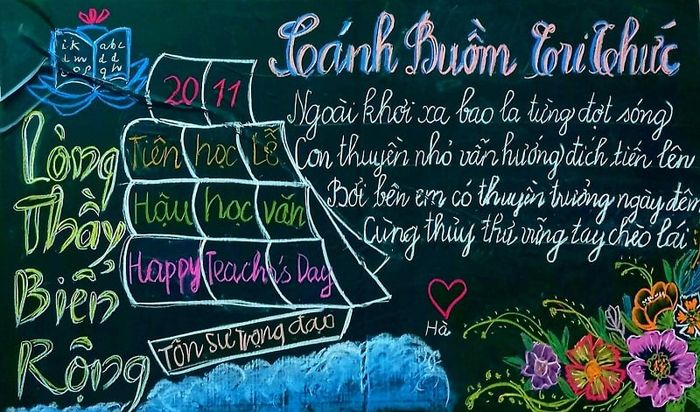 ik abc
lm dd
nop qh
Lòng
Thầy
Biển
Rộng
20 11
Tiên học Lễ
Hậu học văn
Happy Teacher's Day
Tôn Sư Trọng đạo
Cánh Buồm Tri Thức
Ngoài khơi xa bao la từng đợt sóng
Con thuyền nhỏ vẫn hướng đích tiến lên
Bởi bên em có thuyền trưởng ngày đêm
Cùng thủy thủ vững tay chèo lái
Hà